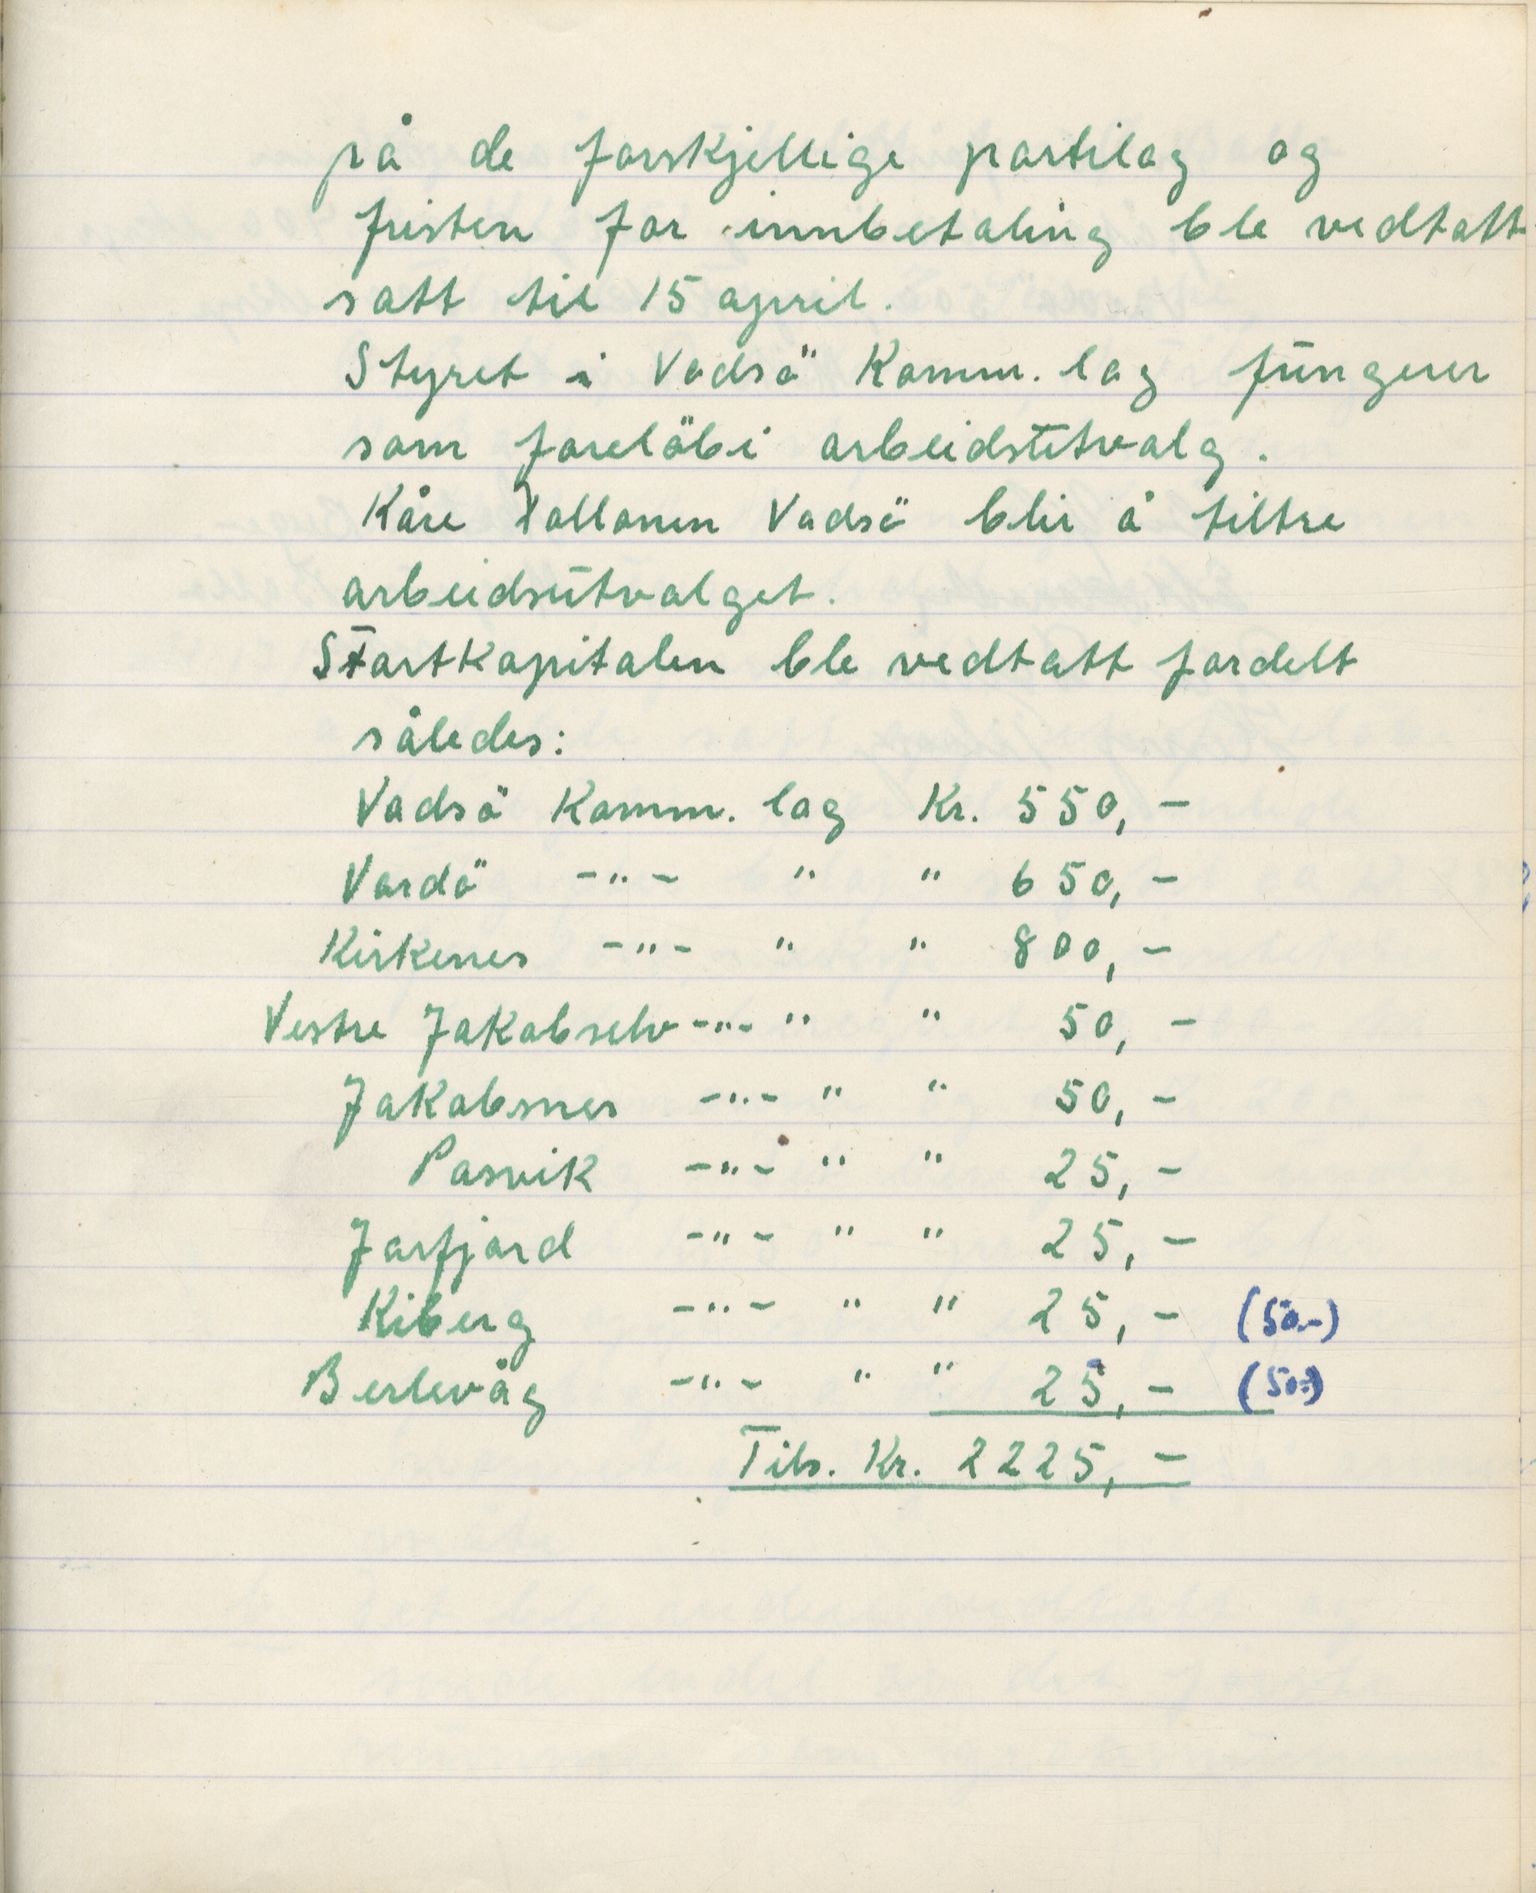 på de forskjellige partilag og
fristen for innbetaling ble vedtatt
satt til 15 april.
Styret i Vadsö Komm. lag fungerer
som foreløbi arbeidsutvalg.
Kåre Tallonen Vadsö blir å tiltre
arbeidsutvalget.
Startkapitalen ble vedtatt fordelt
således:
Vadsö Komm. lag Kr. 550,-
Vardö -"- " " 650,-
Kirkenes -"- " " 800,-
Vestre Jakobselv -"- " " 50,-
Jakobsnes -"- " " 50,-
Pasvik -"- " " 25,-
Jarfjord -"- " " 25,-
Kiberg -"- " " 25,- (50.-)
Berlevåg -"- " " 25,- (50.-)
Tils. Kr. 2225,-